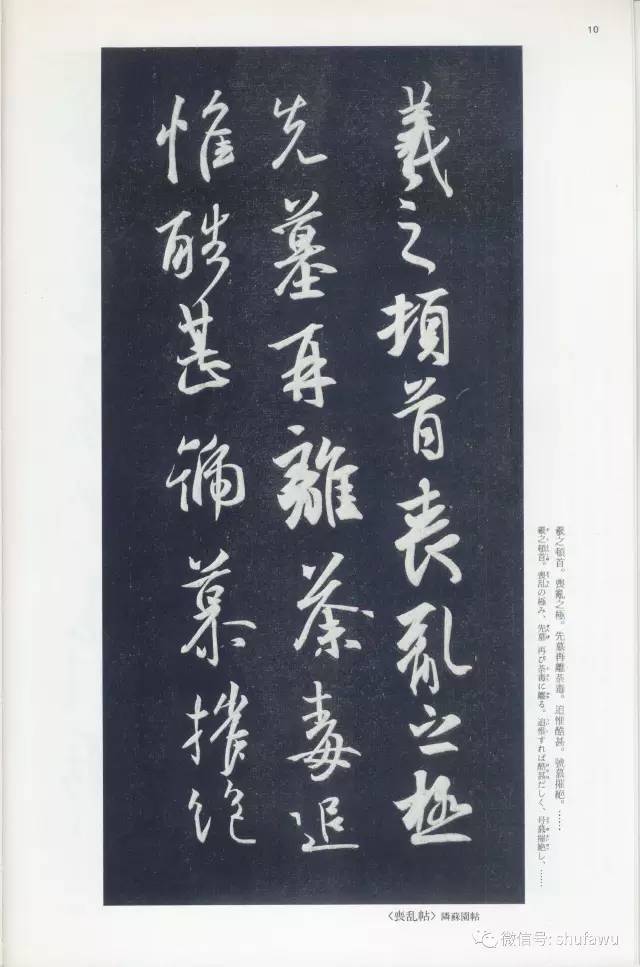 10
羲之頓首喪亂之極
先墓再離荼毒追
惟酷甚號慕摧絶
羲之頓首。喪亂之極。先墓再離荼毒。追惟酷甚。號慕摧絶。……
羲之頓首。喪乱の極み、先墓、再び荼毒に離る。追惟すれば酷甚だしく、号慕摧絶し、……
〈喪乱帖〉 隣蘇園帖
微信号: shufawu